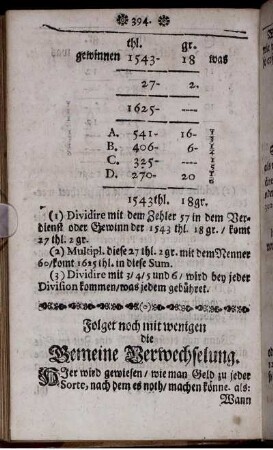 394.
thl. gr.
gewinnen 1543- 18 was
27- 2.
1625-
A. 541- 16-
B. 406- 6-
C. 325-
D. 270- 20
1543thl. 18gr.
(1) Dividire mit dem Zehler 57 in dem Ver-
dienst oder Gewinn der 1543 thl. 18gr. / komt
27 thl. 2 gr.
(2) Multipl. diese 27 thl. 2 gr. mit dem Nenner
60/komt 1625 thl. in diese Sum.
(3) Dividire mit 3/4/5 und 6/ wird bey jeder
Division kommen/was jedem gebühret.
Folget noch mit wenigen
die
Gemeine Verwechselung.
HIer wird gewiesen/ wie man Geld zu jeder
Sorte, nach dem es noth/ machen könne. als:
Wann